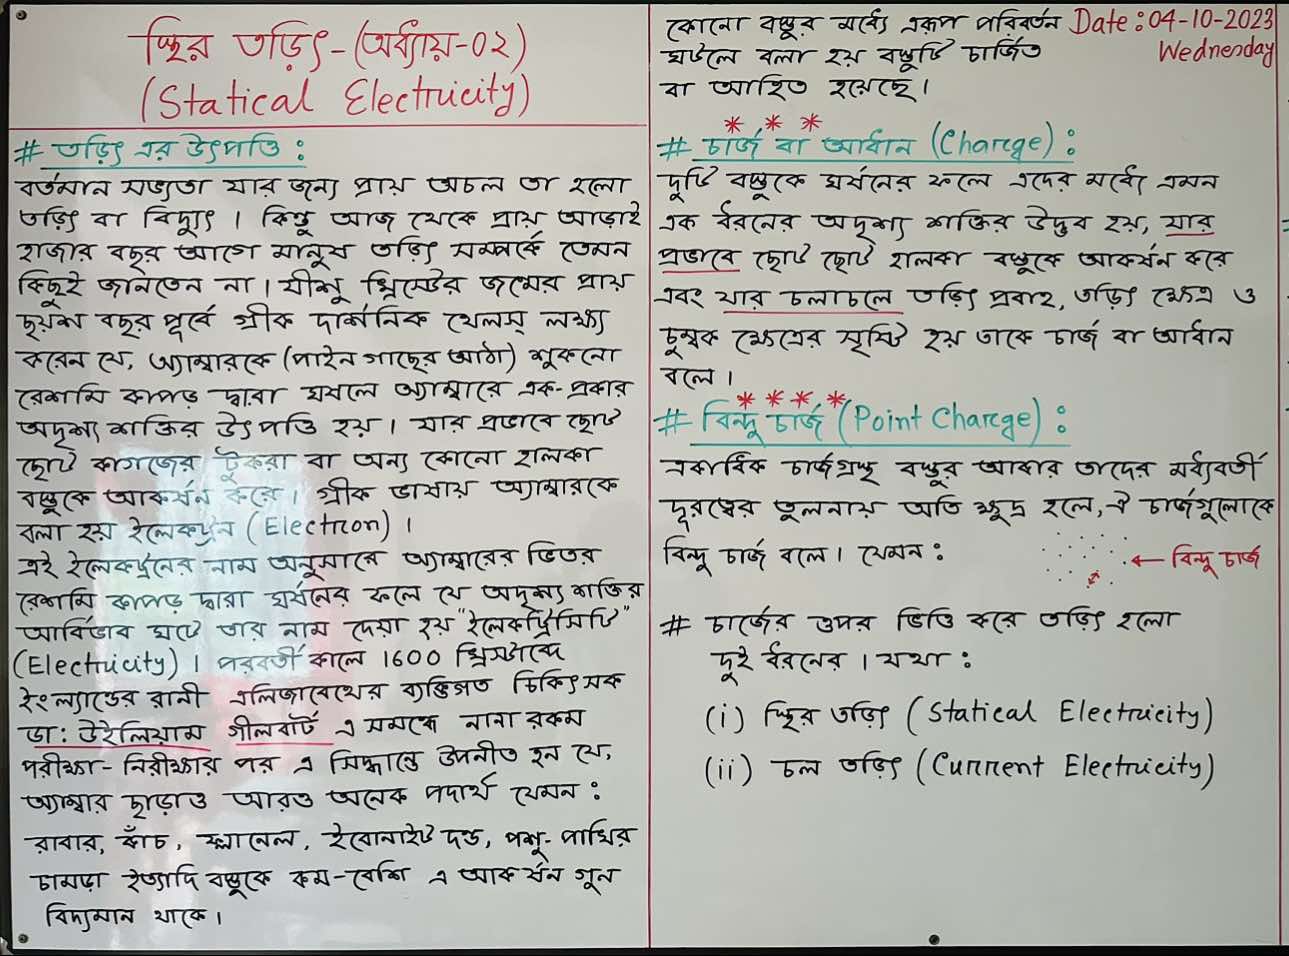 স্থির তড়িৎ-(অধ্যায়-০২)
(Statical Electricity)
# তড়িৎ এর উৎপত্তি :
বর্তমান সভ্যতা যার জন্য প্রায় অচল তা হলো
তড়িৎ বা বিদ্যুৎ । কিন্তু আজ থেকে প্রায় আড়াই
হাজার বছর আগে মানুষ তড়িৎ সম্পর্কে তেমন
কিছুই জানতেন না । যীশু খ্রিস্টের জন্মের প্রায়
ছয়শ বছর পূর্বে গ্রীক দার্শনিক থেলস্ লক্ষ্য
করেন যে, অ্যাম্বারকে (পাইন গাছের আঠা) শুকনো
রেশমি কাপড় দ্বারা ঘষলে অ্যাম্বারে এক-প্রকার
অদৃশ্য শক্তির উৎপত্তি হয় । যার প্রভাবে ছোট
ছোট কাগজের টুকরা বা অন্য কোনো হালকা
বস্তুকে আকর্ষন করে । গ্রীক ভাষায় অ্যাম্বারকে
বলা হয় ইলেকট্রন (Electron) ।
এই ইলেকট্রনের নাম অনুসারে অ্যাম্বারের ভিতর
রেশমি কাপড় দ্বারা ঘর্ষনের ফলে যে অদৃশ্য শক্তির
আবির্ভাব ঘটে তার নাম দেয়া হয় "ইলেকট্রিসিটি"
(Electricity) । পরবর্তী কালে 1600 খ্রিস্টাব্দে
ইংল্যান্ডের রানী এলিজাবেথের ব্যক্তিগত চিকিৎসক
ডা: উইলিয়াম গীলবার্ট এ সমন্ধে নানা রকম
পরীক্ষা-নিরীক্ষার পর এ সিদ্ধান্তে উপনীত হন যে,
অ্যাম্বার ছাড়াও আরও অনেক পদার্থ যেমন :
রাবার, কাঁচ, ফ্লানেল, ইবোনাইট দন্ড, পশু-পাখির
চামড়া ইত্যাদি বস্তুকে কম-বেশি এ আকর্ষন গুন
বিদ্যমান থাকে ।
কোনো বস্তুর মধ্যে এরূপ পরিবর্তন
ঘটলে বলা হয় বস্তুটি চার্জিত
বা আহিত হয়েছে ।
Date : 04-10-2023
Wednesday
* * *
# চার্জ বা আধান (Charge) :
দুটি বস্তুকে ঘর্ষনের ফলে এদের মধ্যে এমন
এক ধরনের অদৃশ্য শক্তির উদ্ভব হয়, যার
প্রভাবে ছোট ছোট হালকা বস্তুকে আকর্ষন করে
এবং যার চলাচলে তড়িৎ প্রবাহ, তড়িৎ ক্ষেত্র ও
চুম্বক ক্ষেত্রের সৃষ্টি হয় তাকে চার্জ বা আধান
বলে ।
* * * *
# বিন্দু চার্জ (Point Charge) :
একাধিক চার্জগ্রস্থ বস্তুর আকার তাদের মধ্যবর্তী
দূরত্বের তুলনায় অতি ক্ষুদ্র হলে, ঐ চার্জগুলোকে
বিন্দু চার্জ বলে । যেমন :
← বিন্দু চার্জ
# চার্জের ওপর ভিত্তি করে তড়িৎ হলো
দুই ধরনের । যথা :
(i) স্থির তড়িৎ (Statical Electricity)
(ii) চল তড়িৎ (Current Electricity)